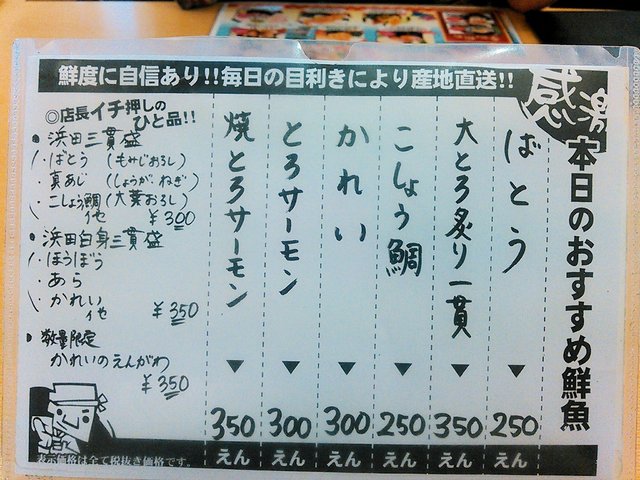 鮮度に自信あり!!毎日の目利きにより産地直送!!
本日のおすすめ鮮魚
ばとう
250
えん
大とろ炙り一貫
350
えん
こしょう鯛
250
えん
かれい
300
えん
とろサーモン
300
えん
焼とろサーモン
350
えん
◎店長イチ押しの
ひと品!!
浜田三貫盛
・ばとう(もみじおろし)
・真あじ(しょうが・ねぎ)
・こしょう鯛(大葉おろし)
他 ¥300
浜田白身三貫盛
・ほうぼう
・あら
・かれい
他 ¥350
数量限定
かれいのえんがわ
¥350
表示価格は全て税抜き価格です。